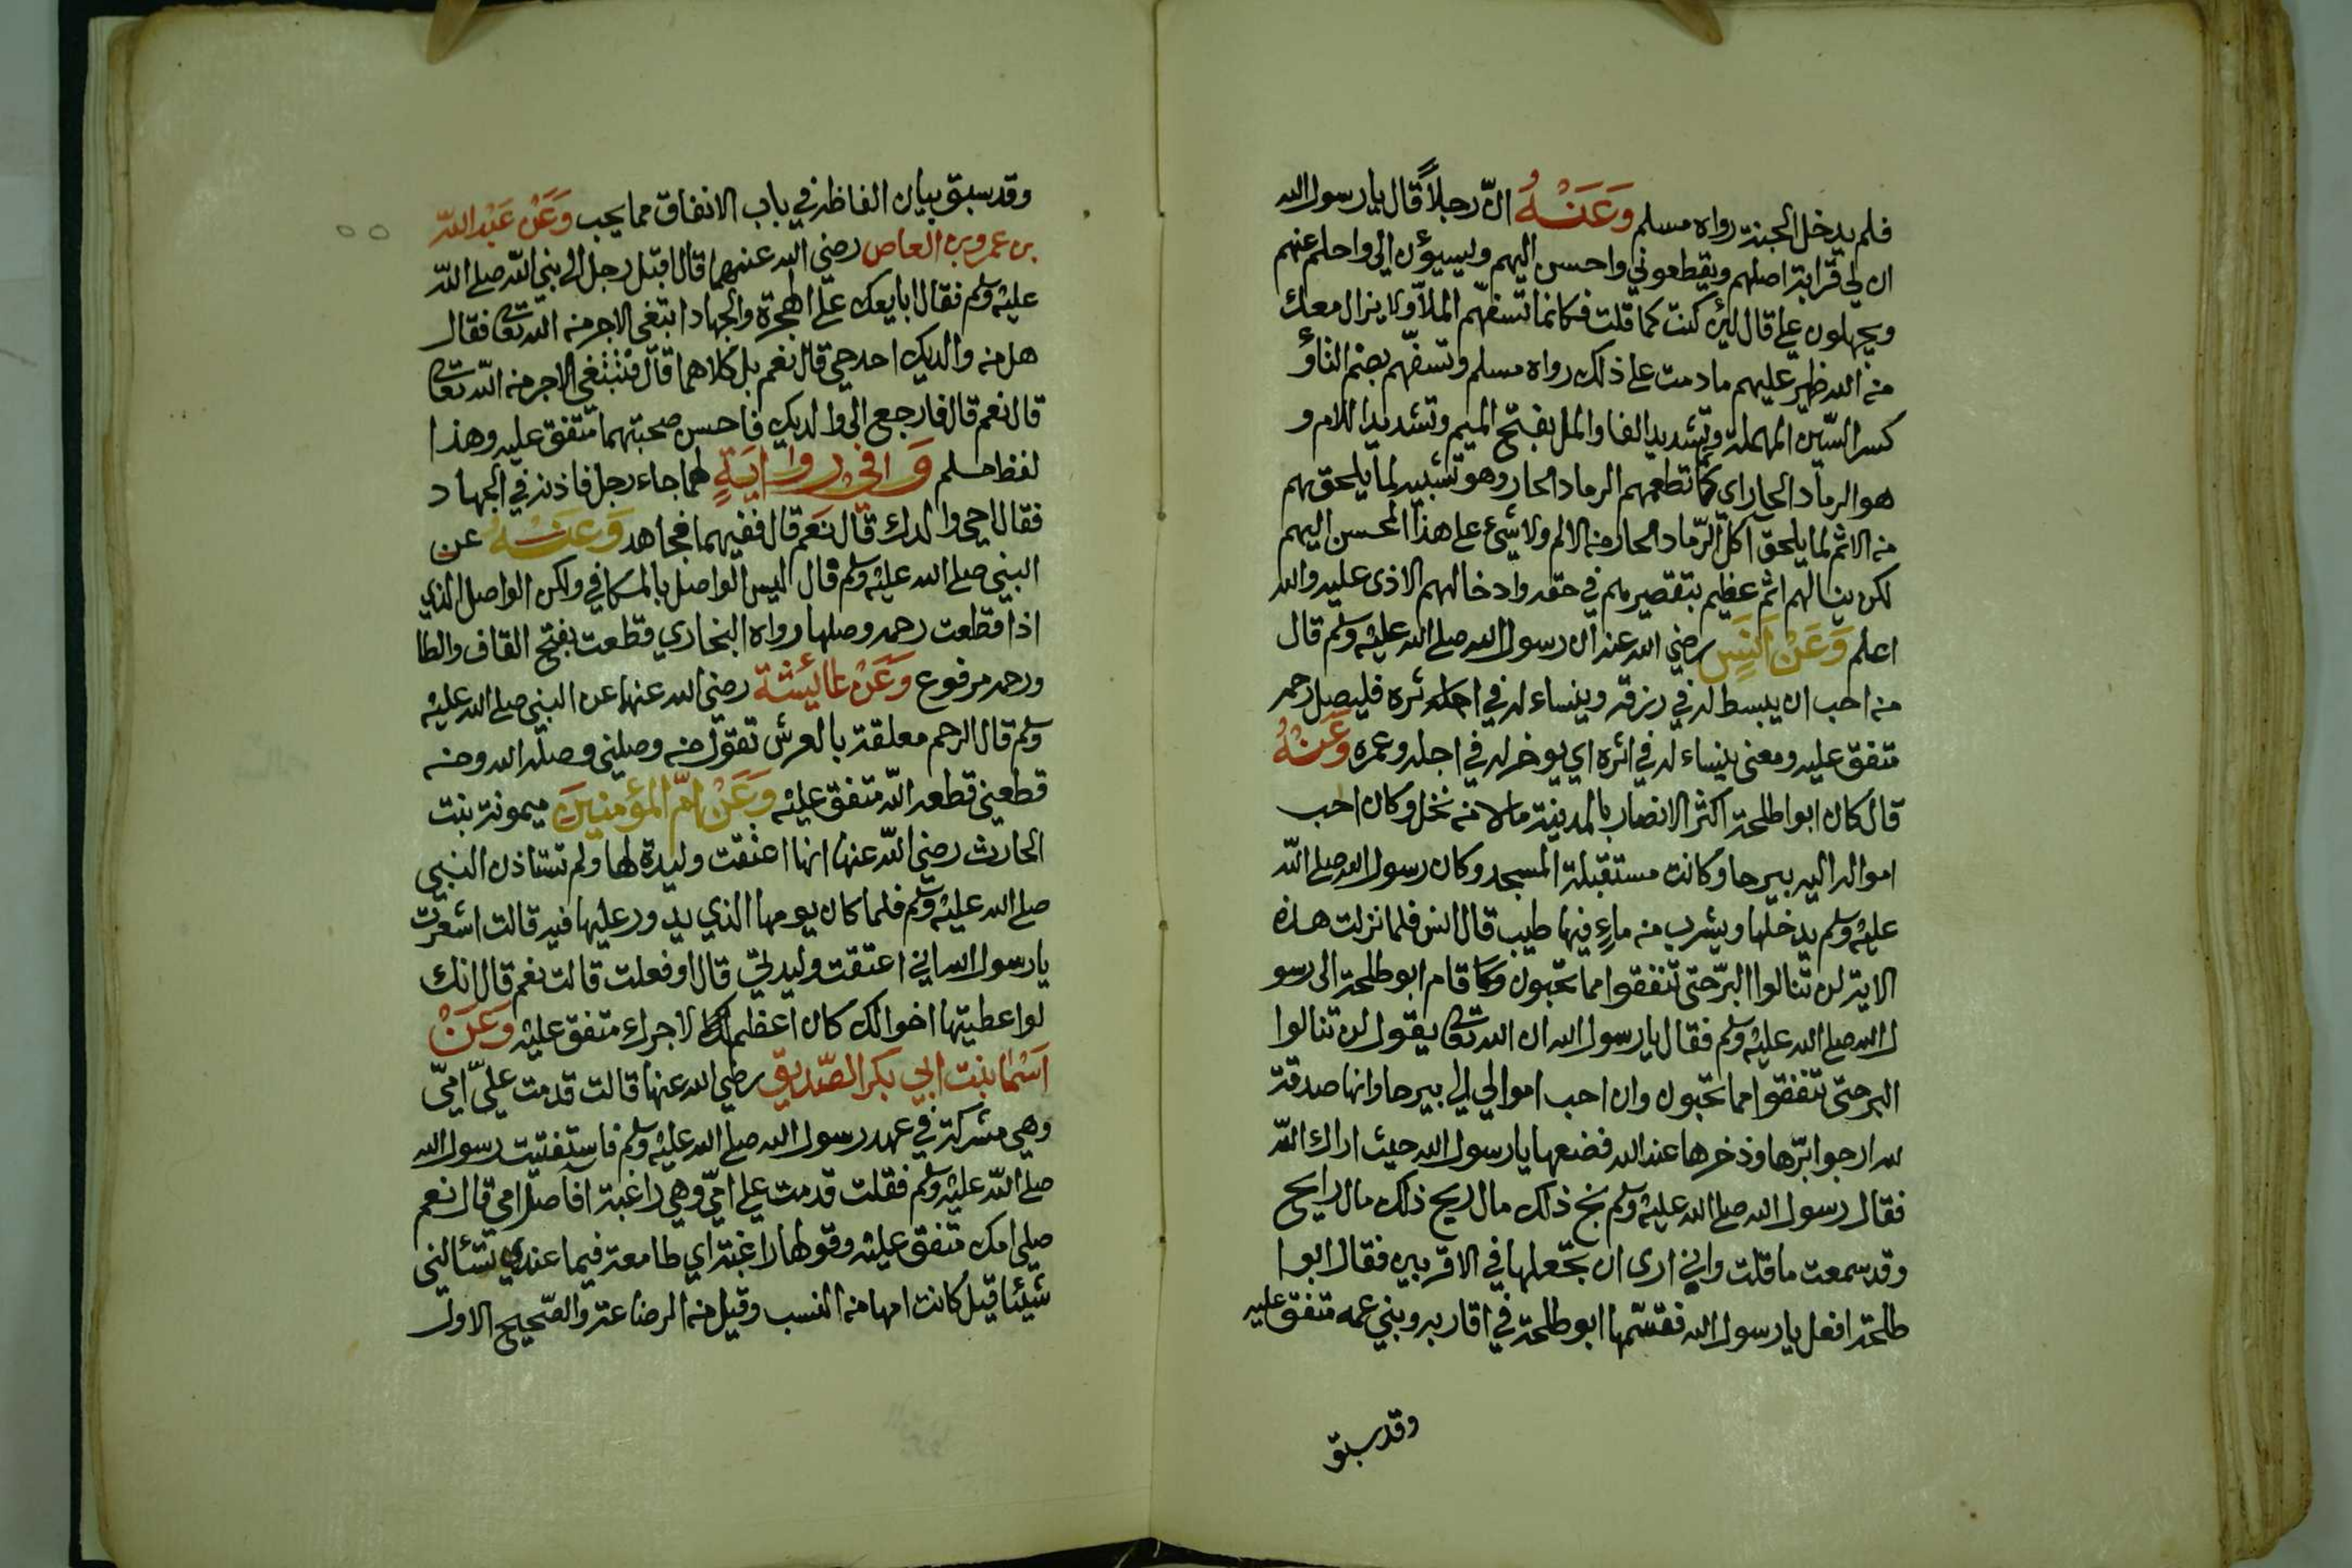 فلم يدخل الجنة رواه مسلم وَعَنْهُ ان رجلاً قال يا رسول الله
ان لي قرابة اصلهم ويقطعوني واحسن اليهم وليسيؤن الي واحلم عنهم
ويجهلون علي قال لئن كنت كما قلت فكانما تسفهم الملّ ولا يزال معك
من الله ظهير عليهم ما دمت على ذلك رواه مسلم وتسفّهم بضم التاؤ
كسر السّين المهملة وتشديد الفا والمل بفتح الميم وتشديد اللام و
هو الرماد الحار اي كانما تطعمهم الرماد الحار وهو تشبيه لما يلحق بهم
من الاثم لما يلحق آكل الرّماد الحار من الالم ولا شيء على هذا المحسن اليهم
لكن ينالهم اثم عظيم بتقصيرهم في حقه وادخالهم الاذى عليه والله
اعلم وَعَنْ اَنَسٍ رضي الله عنه ان رسول الله صلى الله عليه وسلم قال
من احب ان يبسط له في رزقه وينساء له في اثره فليصل رحمه
متفق عليه ومعنى ينساء له في اثره اي يوخر له في اجله وعمره وَعَنْهُ
قال كان ابوا طلحة اكثر الانصار بالمدينة مالا من نخل وكان احب
امواله اليه بيرحا وكانت مستقبلة المسجد وكان رسول الله صلى الله
عليه وسلم يدخلها ويشرب من ماء فيها طيب قال انس فلما نزلت هذه
الاية لن تنالوا البرّ حتى تنفقوا مما تحبون قام ابو طلحة الى رسو
ل الله صلى الله عليه وسلم فقال يا رسول الله ان الله تعالى يقول لن تنالوا
البر حتى تنفقوا مما تحبون وان احب اموالي الي بيرحا وانها صدقة
لله ارجوا برّها وذخرها عند الله فضعها يا رسول الله حيث اراك الله
فقال رسول الله صلى الله عليه وسلم بخ ذلك مال ربح ذلك مال رابح
وقد سمعت ما قلت واني ارى ان تجعلها في الاقربين فقال ابوا
طلحة افعل يا رسول الله فقسّمها ابو طلحة في اقاربه وبني عمه متفق عليه
وقد سبق
وقد سبق بيان الفاظه في باب الانفاق مما يحب وَعَنْ عَبْد الله
بن عمرو بن العاص رضي الله عنهما قال اقبل رجل الى نبي الله صلى الله
عليه وسلم فقال ابايعك على الهجرة والجهاد ابتغي الاجر من الله تعالى فقال
هل من والديك احد حي قال نعم بل كلاهما قال فتبتغي الاجر من الله تعالى
قال نعم قال فارجع الى والديك فاحسن صحبتهما متفق عليه وهذا
لفظ مسلم وَافي رِوايَةٍ لهما جاء رجل فاذنه في الجهاد
فقال احي والداك قال نعم قال ففيهما فجاهد وَعَنْهُ عن
النبي صلى الله عليه وسلم قال ليس الواصل بالمكافي ولكن الواصل الذي
اذا قطعت رحمه وصلها رواه البخاري قطعت بفتح القاف والطا
ورحمه مرفوع وَعَنْ عائِشة رضي الله عنها عن النبي صلى الله عليه
وسلم قال الرحم معلقة بالعرش تقول من وصلني وصله الله ومن
قطعني قطعه الله متفق عليه وَعَنْ امّ المؤمنين ميمونة بنت
الحارث رضي الله عنها انها اعتقت وليدة لها ولم تستاذن النبي
صلى الله عليه وسلم فلما كان يومها الذي يدور عليها فيه قالت اشعرت
يا رسول الله اني اعتقت وليدتي قال او فعلت قالت نعم قال انك
لو اعطيتها اخوالك كان اعظم لاجرك متفق عليه وَعَنْ
اَسْما بنت ابي بكر الصّديق رضي الله عنها قالت قدمت عليّ امّي
وهي مشركة في عهد رسول الله صلى الله عليه وسلم فاستفتيت رسول الله
صلى الله عليه وسلم فقلت قدمت علي امّي وهي راغبة افاصل امي قال نعم
صلي امك متفق عليه وقولها راغبة اي طامعة فيما عندي تسألني
شيئا قيل كانت امها من النسب وقيل من الرضاعة والصّحيح الاول